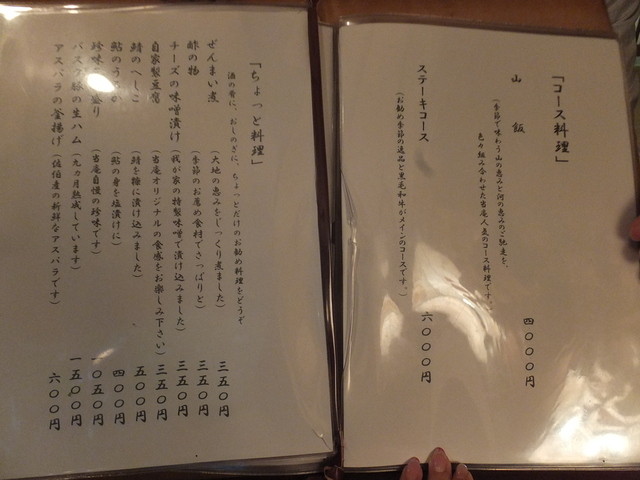 「コース料理」
山飯
(季節で味わう山の恵みと河の恵みのご馳走を、
色々組み合わせた当庵人気のコース料理です。)
四〇〇〇円
ステーキコース
(お勧め季節の逸品と黒毛和牛がメインのコースです。)
六〇〇〇円
「ちょっと料理」
酒の肴に、おしのぎに、ちょっとだけのお勧め料理をどうぞ
ぜんまい煮 (大地の恵みをじっくり煮ました) 三五〇円
酢の物 (季節のお薦め食材でさっぱりと) 三五〇円
チーズの味噌漬け (我が家の特製味噌で漬け込みました) 三五〇円
自家製豆腐 (当庵オリジナルの食感をお楽しみ下さい) 三五〇円
鯖のへしこ (鯖を糠に漬け込みました) 五〇〇円
鮎のうるか (鮎の身を塩漬けに) 四〇〇円
珍味 盛り (当庵自慢の珍味です) 一〇五〇円
バスク豚の生ハム (九カ月熟成しています) 一五〇〇円
アスパラの釜揚げ (佐伯産の新鮮なアスパラです) 六〇〇円